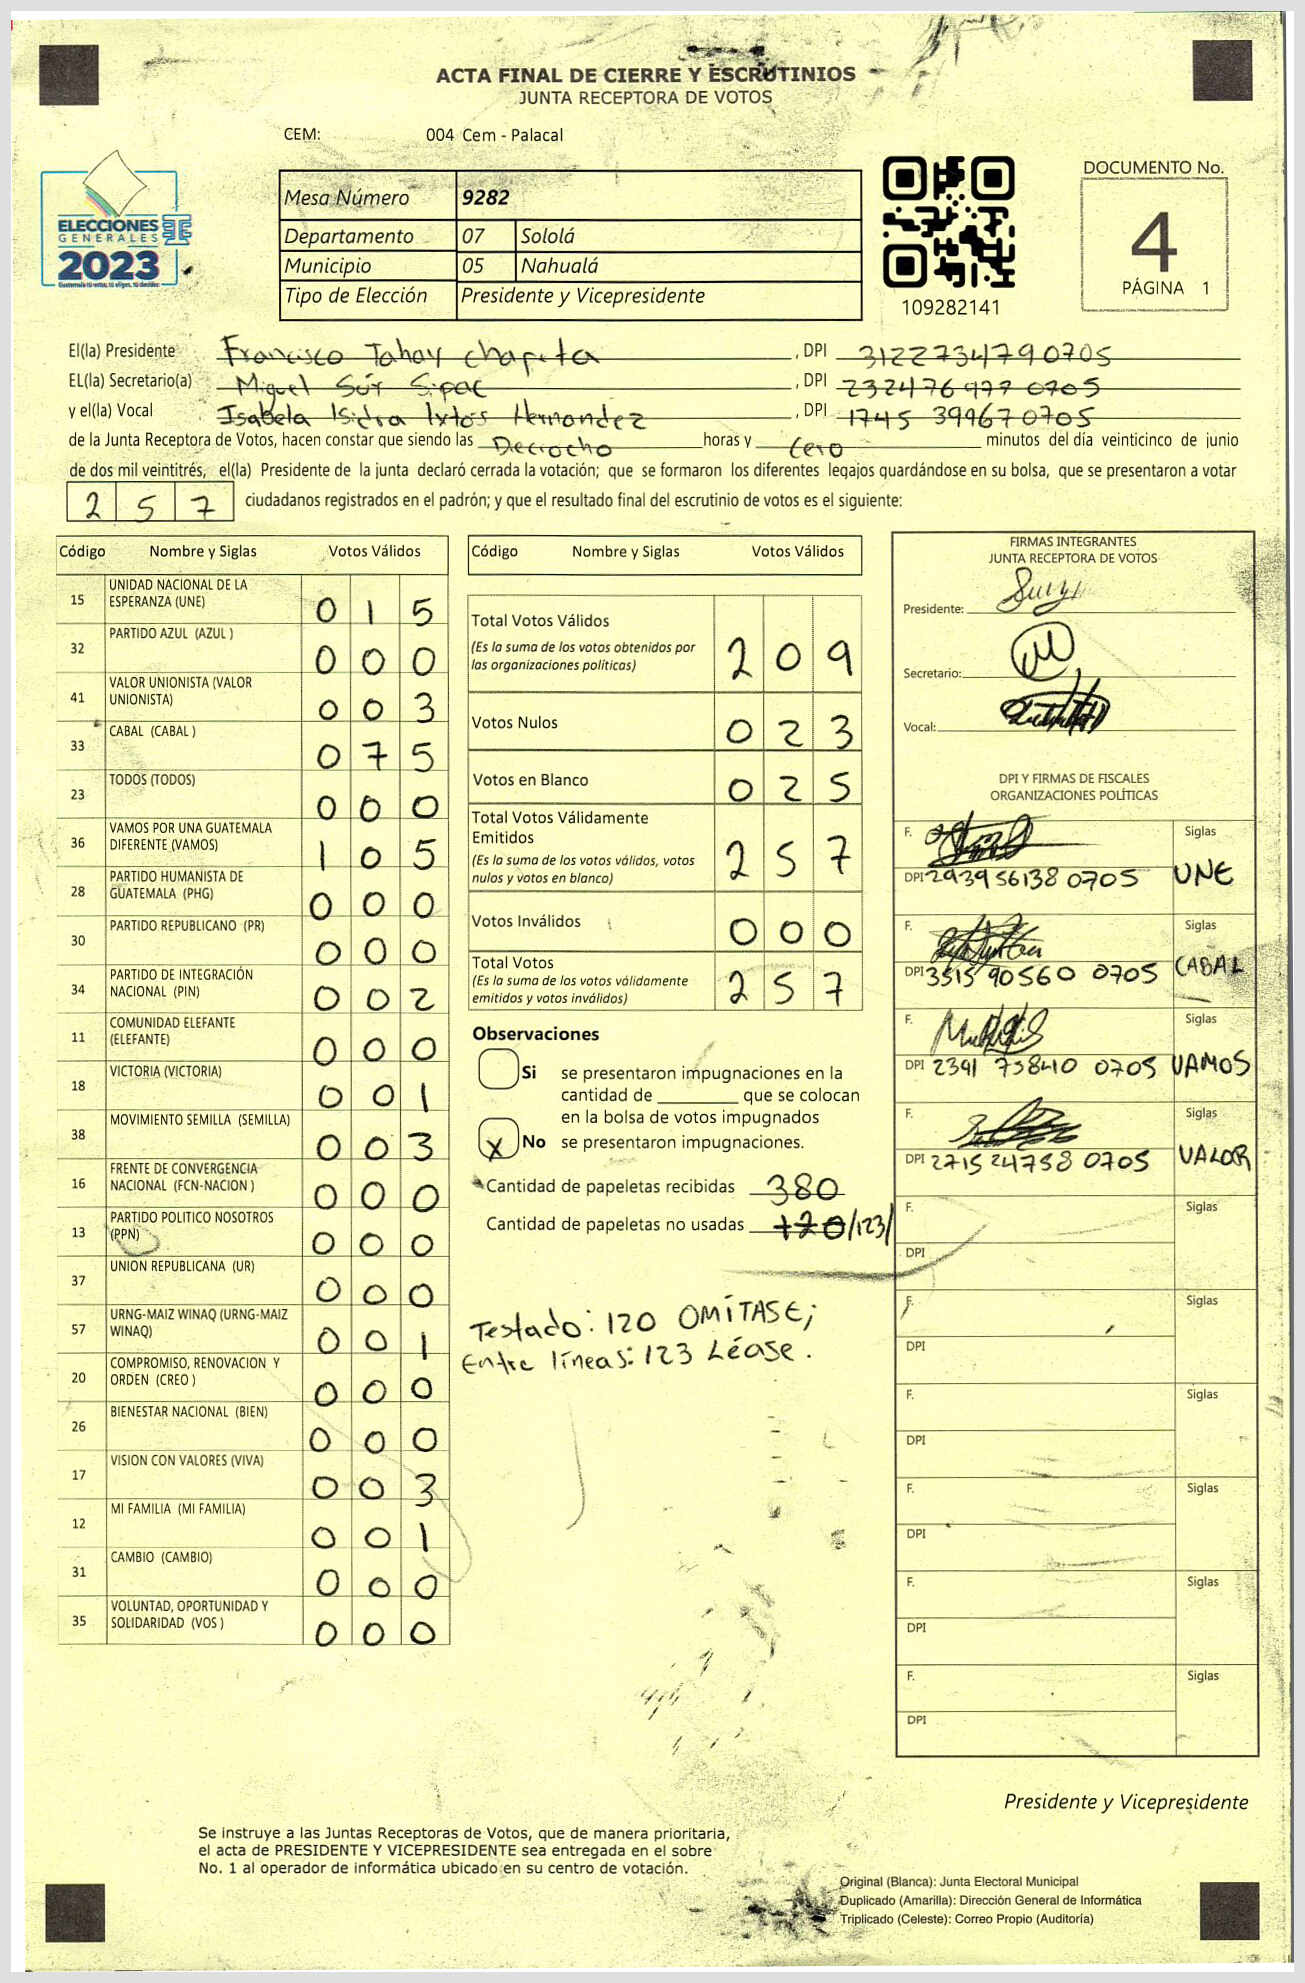 ACTA FINAL DE CIERRE Y ESCRUTINIOS
JUNTA RECEPTORA DE VOTOS
CEM: 004 Cem - Palacal
ELECCIONES
GENERALES
2023
Guatemala tú votas, tú eliges, tú decides
Mesa Número 9282
Departamento 07 Sololá
Municipio 05 Nahualá
Tipo de Elección Presidente y Vicepresidente
109282141
DOCUMENTO No.
4
PÁGINA 1
El(la) Presidente Francisco Tahay Chapeta, DPI 3122734790705
EL(la) Secretario(a) Miguel Súy Sipac, DPI 232476977 0705
y el(la) Vocal Isabela Isidra Ixtós Hernandez, DPI 1745 399670705
de la Junta Receptora de Votos, hacen constar que siendo las Deciocho horas y Cero minutos del día veinticinco de junio
de dos mil veintitrés, el(la) Presidente de la junta declaró cerrada la votación; que se formaron los diferentes legajos quardándose en su bolsa, que se presentaron a votar
2 5 7 ciudadanos registrados en el padrón; y que el resultado final del escrutinio de votos es el siguiente:
Código Nombre y Siglas Votos Válidos
15 UNIDAD NACIONAL DE LA
ESPERANZA (UNE) 0 1 5
32 PARTIDO AZUL (AZUL ) 0 0 0
41 VALOR UNIONISTA (VALOR
UNIONISTA) 0 0 3
33 CABAL (CABAL ) 0 7 5
23 TODOS (TODOS) 0 0 0
36 VAMOS POR UNA GUATEMALA
DIFERENTE (VAMOS) 1 0 5
28 PARTIDO HUMANISTA DE
GUATEMALA (PHG) 0 0 0
30 PARTIDO REPUBLICANO (PR) 0 0 0
34 PARTIDO DE INTEGRACIÓN
NACIONAL (PIN) 0 0 2
11 COMUNIDAD ELEFANTE
(ELEFANTE) 0 0 0
18 VICTORIA (VICTORIA) 0 0 1
38 MOVIMIENTO SEMILLA (SEMILLA) 0 0 3
16 FRENTE DE CONVERGENCIA
NACIONAL (FCN-NACION ) 0 0 0
13 PARTIDO POLITICO NOSOTROS
(PPN) 0 0 0
37 UNION REPUBLICANA (UR) 0 0 0
57 URNG-MAIZ WINAQ (URNG-MAIZ
WINAQ) 0 0 1
20 COMPROMISO, RENOVACION Y
ORDEN (CREO ) 0 0 0
26 BIENESTAR NACIONAL (BIEN) 0 0 0
17 VISION CON VALORES (VIVA) 0 0 3
12 MI FAMILIA (MI FAMILIA) 0 0 1
31 CAMBIO (CAMBIO) 0 0 0
35 VOLUNTAD, OPORTUNIDAD Y
SOLIDARIDAD (VOS ) 0 0 0
Código Nombre y Siglas Votos Válidos
Total Votos Válidos
(Es la suma de los votos obtenidos por
las organizaciones políticas) 2 0 9
Votos Nulos 0 2 3
Votos en Blanco 0 2 5
Total Votos Válidamente
Emitidos
(Es la suma de los votos válidos, votos
nulos y votos en blanco) 2 5 7
Votos Inválidos 0 0 0
Total Votos
(Es la suma de los votos válidamente
emitidos y votos inválidos) 2 5 7
Observaciones
Si se presentaron impugnaciones en la
cantidad de ________ que se colocan
en la bolsa de votos impugnados
X No se presentaron impugnaciones.
Cantidad de papeletas recibidas 380
Cantidad de papeletas no usadas 120/123/
Testado: 120 OMÍTASE;
Entre líneas: 123 Léase.
FIRMAS INTEGRANTES
JUNTA RECEPTORA DE VOTOS
Presidente:
Secretario:
Vocal:
DPI Y FIRMAS DE FISCALES
ORGANIZACIONES POLÍTICAS
F. Siglas
DPI 293956138 0705 UNE
F. Siglas
DPI 3515 90560 0705 CABAL
F. Siglas
DPI 2391 75840 0705 VAMOS
F. Siglas
DPI 2715 24758 0705 VALOR
F. Siglas
DPI
F. Siglas
DPI
F. Siglas
DPI
F. Siglas
DPI
F. Siglas
DPI
F. Siglas
DPI
Presidente y Vicepresidente
Se instruye a las Juntas Receptoras de Votos, que de manera prioritaria,
el acta de PRESIDENTE Y VICEPRESIDENTE sea entregada en el sobre
No. 1 al operador de informática ubicado en su centro de votación.
Original (Blanca): Junta Electoral Municipal
Duplicado (Amarilla): Dirección General de Informática
Triplicado (Celeste): Correo Propio (Auditoría)